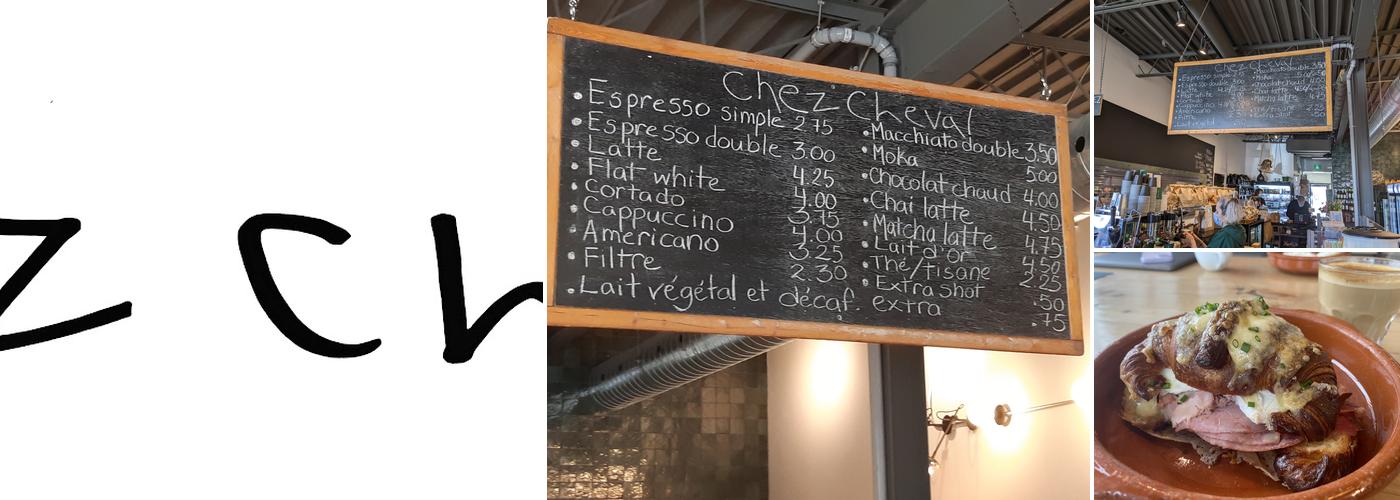 z ch
Chez Cheval
• Espresso simple 2.75
• Espresso double 3.00
• Latte 4.25
• Flat white 4.00
• Cortado 3.75
• Cappuccino 4.00
• Americano 3.25
• Filtre 2.30
• Lait végétal et décaf. extra .75
• Macchiato double 3.50
• Moka 5.00
• Chocolat chaud 4.00
• Chai latte 4.50
• Matcha latte 4.75
• Lait d'or 4.50
• Thé/tisane 2.25
• Extra shot .50
Chez Cheval